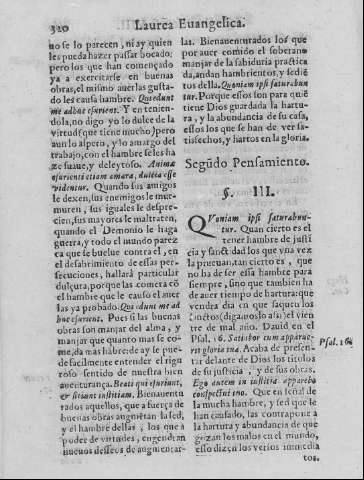 320 Laurea Euangelica.
no se lo parecen, ni ay quien
les pueda hazer passar bocado:
pero los que han començado
ya a exercitarse en buenas
obras, el mismo auerlas gusta-
do les causa hambre. Qui edunt
me adhuc esurient. Y en tenien-
dola, no digo yo lo dulce de la
virtud (que tiene mucho) pero
aun lo aspero, y lo amargo del
trabajo, con el hambre se les ha
ze suaue, y deleytoso. Animæ
esurienti etiam amara, dulcia esse
videntur. Quando sus amigos
le dexen, sus enemigos le mur-
muren, sus iguales le despre-
cien, sus mayores le maltraten,
quando el Demonio le haga
guerra, y todo el mundo parez
ca que se buelue contra el, en
el desabrimiento de essas per-
secuciones, hallarà particular
dulçura, porque las comerà cõ
el hambre que le causo el auer
las ya probado. Qui edunt me ad
huc esurient. Pues si las buenas
obras son manjar del alma, y
manjar que quanto mas se co-
me, da mas hambre de ay se pue-
de facilmente entender el rigu
roso sentido de nuestra bien
auenturança. Beati qui esuriunt,
& sitiunt iustitiam. Bienauentu
rados aquellos, que a fuerça de
buenas obras augmẽtan la sed,
y el hambre dellas, los que a
poder de virtudes, engendran
nueuos desseos de augmentar-
las. Bienauenturados los que
por auer comido el soberano
manjar de la sabiduria practica
da, andan hambrientos, y sediẽ
tos della. Quoniam ipsi saturabun
tur. Porque essos son para quiẽ
tiene Dios guardada la hartu-
ra, y la abundancia de su casa,
essos los que se han de ver sa-
tisfechos, y hartos en la gloria.
Segũdo Pensamiento.
§. III.
QVoniam ipsi saturabun-
tur. Quan cierto es el
tener hambre de justi
cia y sanctidad los que vna vez
la prueuan, tan cierto es, que
no ha de ser essa hambre para
siempre, sino que tambien ha
de auer tiempo de hartura: que
vendra dia en que saquen los
sanctos (digamoslo assi) el vien
tre de mal año. Dauid en el
Psal. 16. Satiabor cum apparue-
rit gloria tua. Acaba de presen-
tar delante de Dios los titulos
de su justicia, y de sus obras.
Ego autem in iustitia apparebo
conspectui tuo. Que en señal de
la mucha hambre, y sed que le
han causado, las contrapone a
la hartura y abundancia de que
gozan los malos en el mundo,
esso dizen los versos inmedia
tos.
Psal. 16